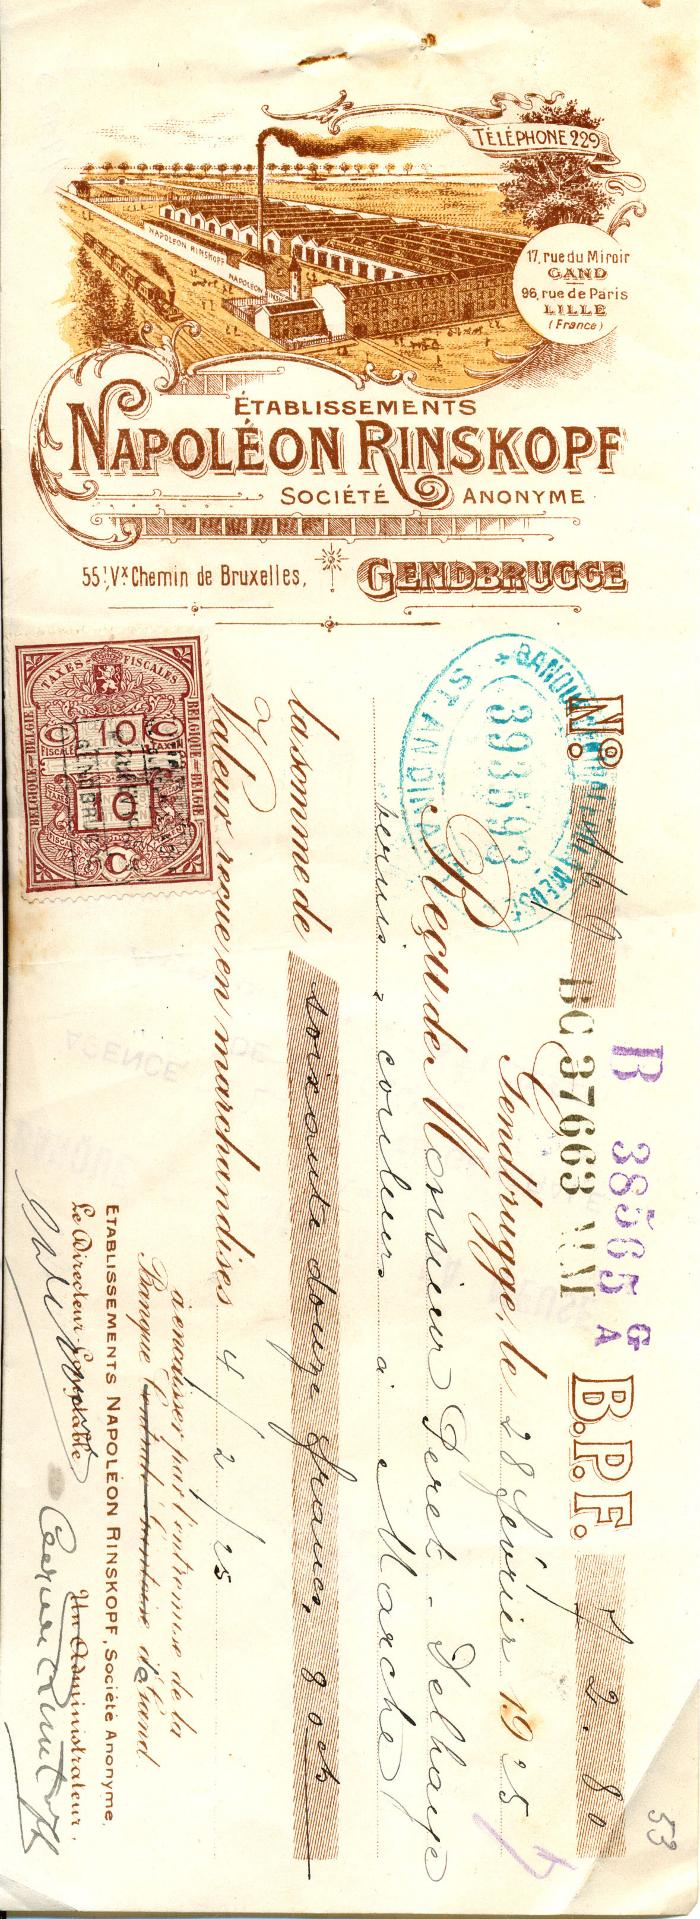 TÉLÉPHONE 229
17, rue du Miroir
GAND
96, rue de Paris
LILLE
(France)
NAPOLEON RINSKOPF
NAPOLEON
ÉTABLISSEMENTS
NAPOLÉON RINSKOPF
SOCIÉTÉ ANONYME
55, Vx Chemin de Bruxelles, GENDBRUGGE
TAXES FISCALES
BELGIQUE - BELGIE
BELGIQUE - BELGIE
10 10
10
393593
ST ANDING
R 38565 G
A
BC 37663
53
No B.P.F. 72.80
Gendbrugge, le 28 février 1925
Reçu de Monsieur Peret - Delhaye
vernis & couleurs à Marche
la somme de soixante douze francs, 80 cts
Valeur reçue en marchandises 4/2/25
à encaisser par l'entremise de la
Banque de Gand
ETABLISSEMENTS NAPOLÉON RINSKOPF, Société Anonyme,
Le Directeur Comptable Un Administrateur,
AGENCE DE